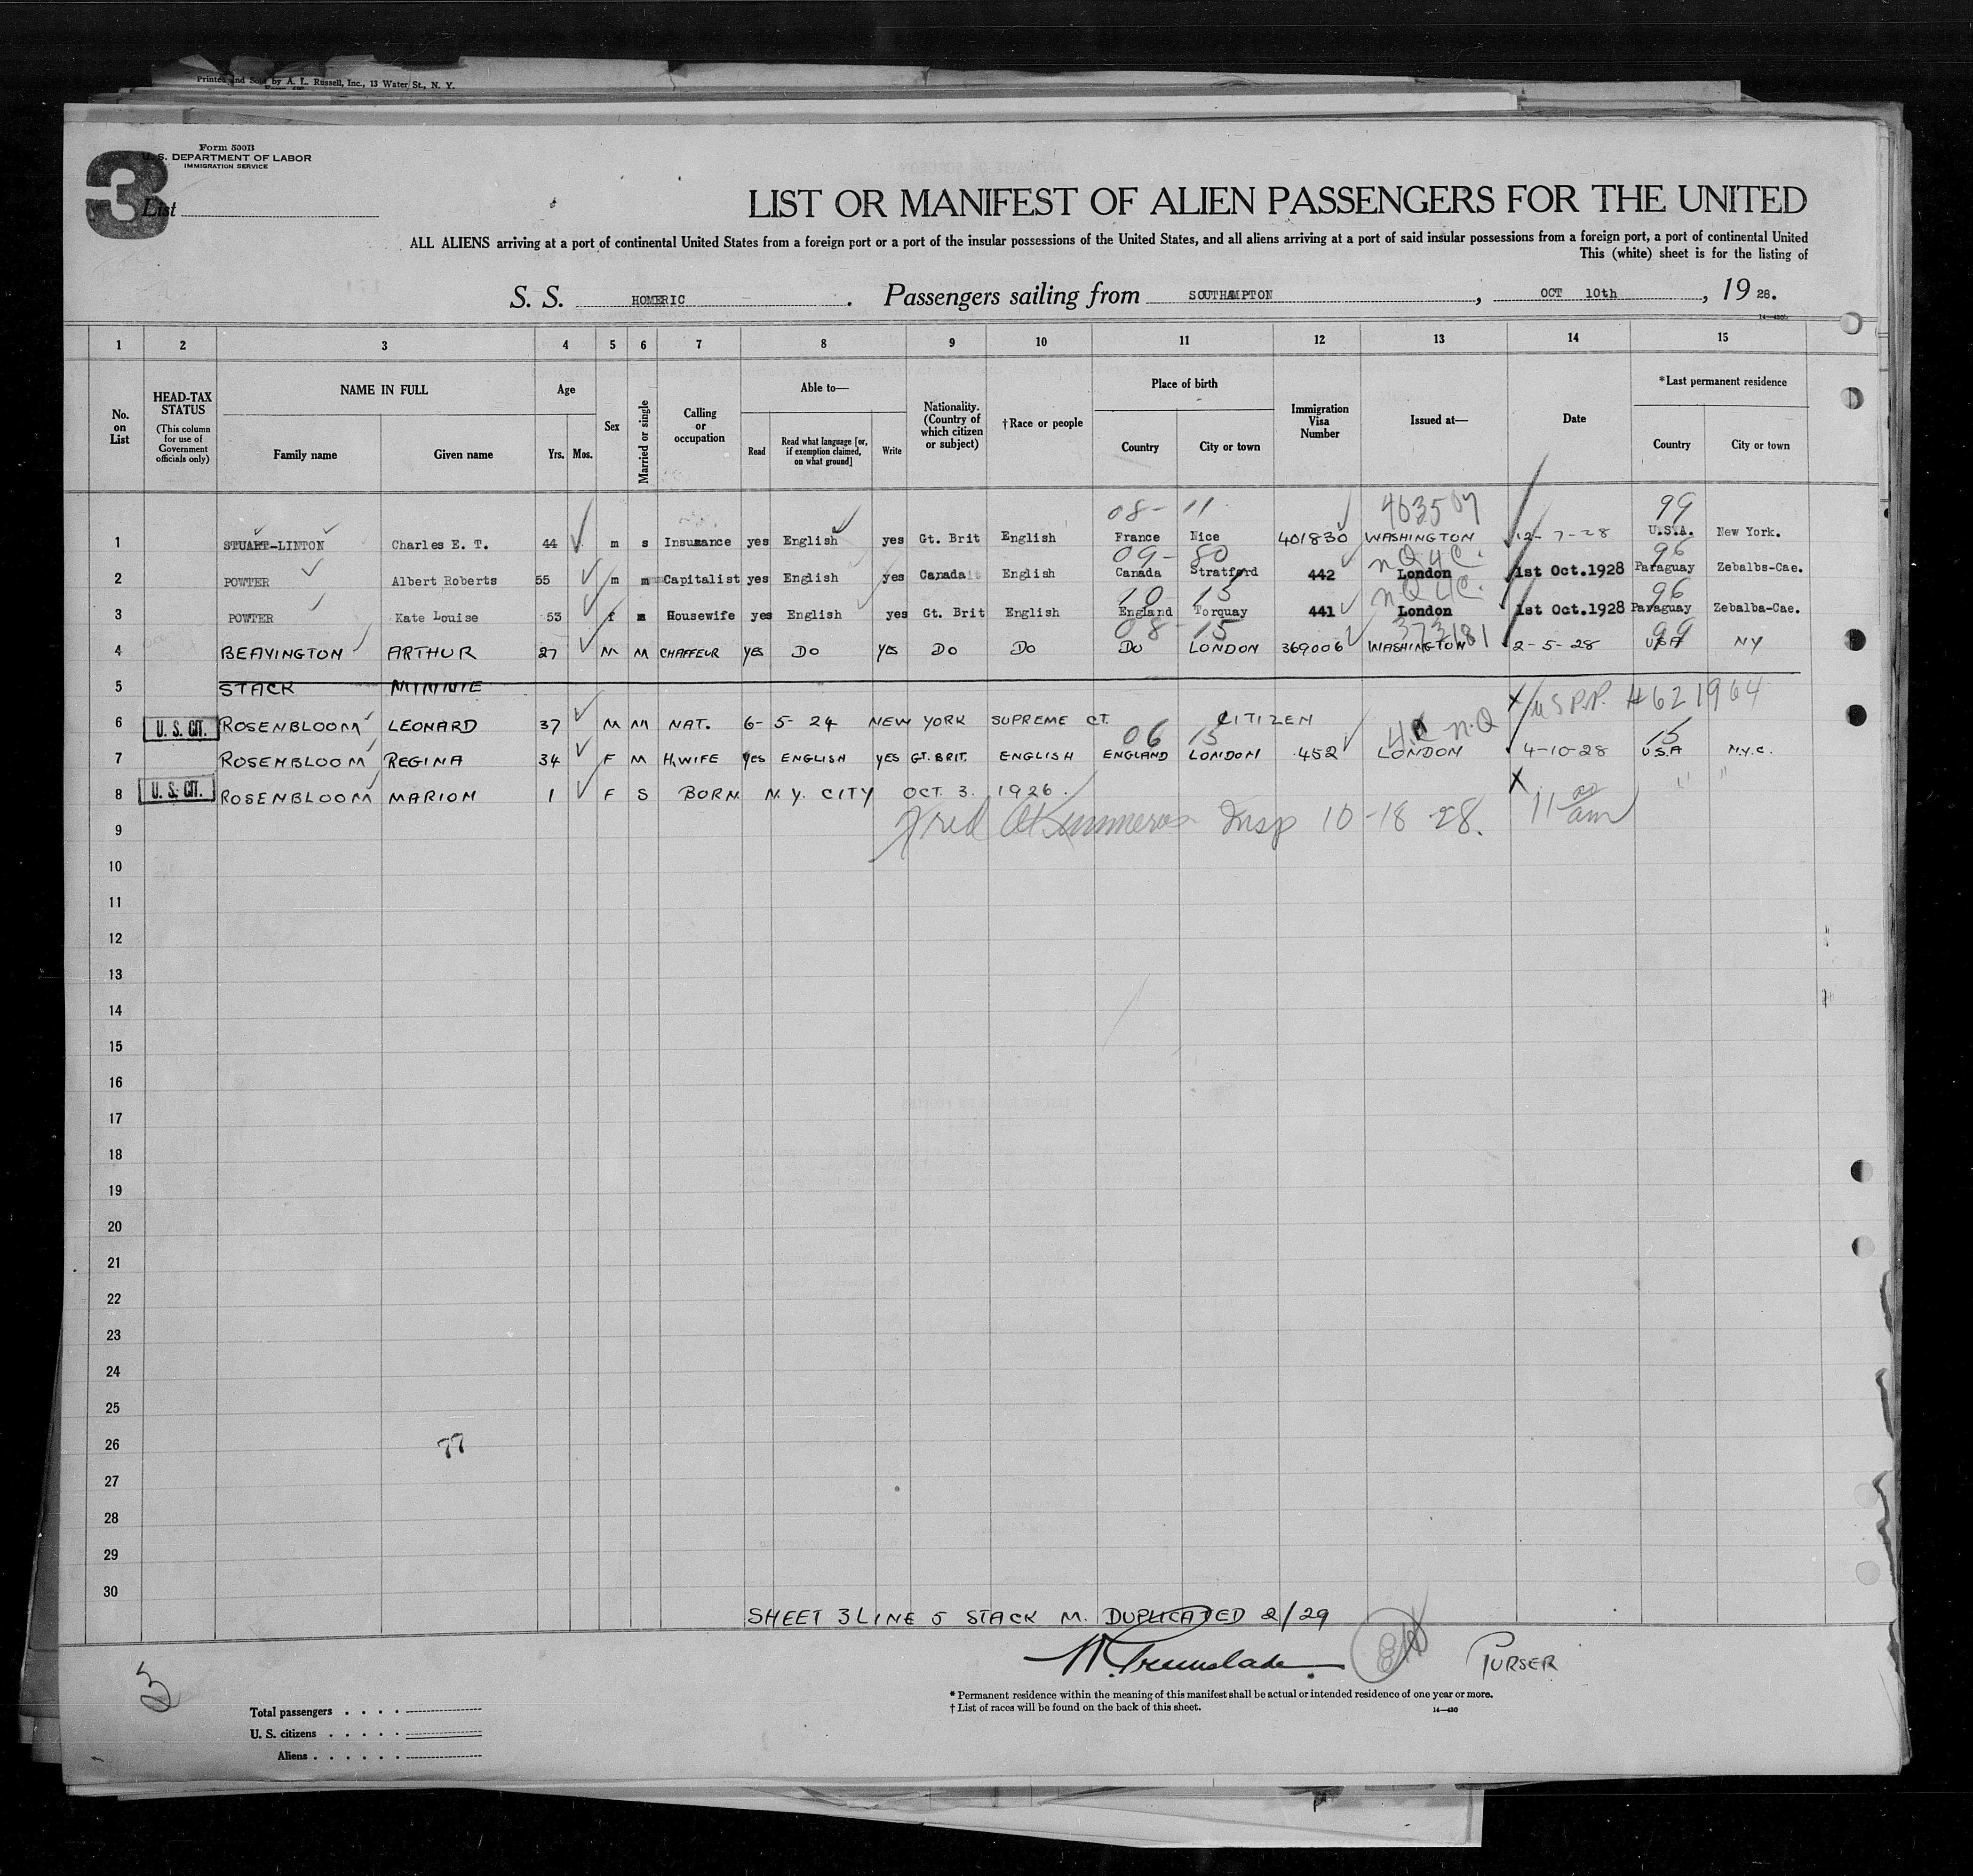 Printed and Sold by A. L. Russell, Inc., 13 Water St., N. Y.
Form 500B
U. S. DEPARTMENT OF LABOR
IMMIGRATION SERVICE
3
List
LIST OR MANIFEST OF ALIEN PASSENGERS FOR THE UNITED
ALL ALIENS arriving at a port of continental United States from a foreign port or a port of the insular possessions of the United States, and all aliens arriving at a port of said insular possessions from a foreign port, a port of continental United
This (white) sheet is for the listing of
S. S. HOMERIC . Passengers sailing from SOUTHAMPTON , OCT 10th , 19 28.
1 2 3 4 5 6 7 8 9 10 11 12 13 14 15
No. on List
HEAD-TAX STATUS (This column for use of Government officials only)
NAME IN FULL
Family name Given name
Age
Yrs. Mos.
Sex
Married or single
Calling or occupation
Able to—
Read
Read what language [or, if exemption claimed, on what ground]
Write
Nationality. (Country of which citizen or subject)
†Race or people
Place of birth
Country City or town
Immigration Visa Number
Issued at—
Date
*Last permanent residence
Country City or town
08- 11 99
1 STUART-LINTON Charles E. T. 44 m s Insurance yes English yes Gt. Brit English France Nice 401830 WASHINGTON 12-7-28 U.S.A. New York.
09- 80 NQ 4C. 96
2 POWTER Albert Roberts 55 m m Capitalist yes English yes Canada English Canada Stratford 442 London 1st Oct.1928 Paraguay Zebalbs-Cae.
10 15 NQ 4C. 96
3 POWTER Kate Louise 53 f m Housewife yes English yes Gt. Brit English England Torquay 441 London 1st Oct.1928 Paraguay Zebalba-Cae.
08-15 373181 99
4 BEAVINGTON ARTHUR 27 M M CHAFFEUR YES DO YES DO DO DO LONDON 369006 WASHINGTON 2-5-28 USA NY
5 STACK MINNIE
6 U. S. CIT. ROSENBLOOM LEONARD 37 M M NAT. 6-5-24 NEW YORK SUPREME CT. CITIZEN X U S P.P. #621964
06 15 N.Q 15
7 ROSENBLOOM REGINA 34 F M H,WIFE YES ENGLISH YES GT. BRIT. ENGLISH ENGLAND LONDON 452 LONDON 4-10-28 U.S.A N.Y.C.
8 U. S. CIT. ROSENBLOOM MARION 1 F S BORN N.Y. CITY OCT. 3. 1926. X " "
9 Fred Insp 10-18-28. 11 00 am
10
11
12
13
14
15
16
17
18
19
20
21
22
23
24
25
26 77
27
28
29
30
SHEET 3 LINE 5 STACK M. DUPLICATED 2/29
PURSER
3
* Permanent residence within the meaning of this manifest shall be actual or intended residence of one year or more.
† List of races will be found on the back of this sheet.
14—430
Total passengers
U. S. citizens
Aliens